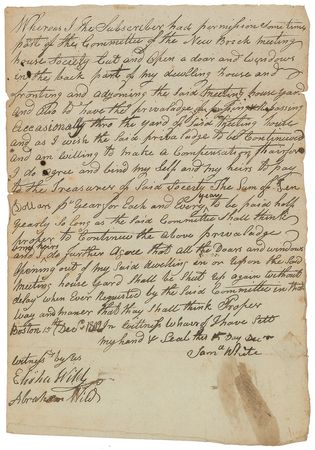 Whereas I the Subscriber had permission sometime
past of the Committee of the New Brick Meeting
house Society Cut and Open a door and windows
in the back part of my dwelling house and
fronting and adjoining the said Meeting house yard
and also to have the privaladge of passing & Repassing
occasionally thro the yard of said Meeting house
and as I wish the said privaladge to be Continued
and am willing to make a Compensation thairfor
I do agree and bind my Self and my heirs to pay
to the Treasurer of Said Society The Sum of Ten
Dollars pr year for Each and Every year to be paid half
yearly So Long as the said Committee Shall think
proper to Continue the above privaladge
and I do further Agree that all the Doars and windows
opening out of my said dwelling in or upon the Said
Meeting house yard Shall be Shutt up again without
delay when Ever Requested by the Said Committee in that
way and manner that thay Shall think Proper
Boston 15th Decr 1802 in Wittness wharof I have Sett
my hand & Seal this Day Decr
Saml White
Witness by us
Elisha Wild
Abraham Wild